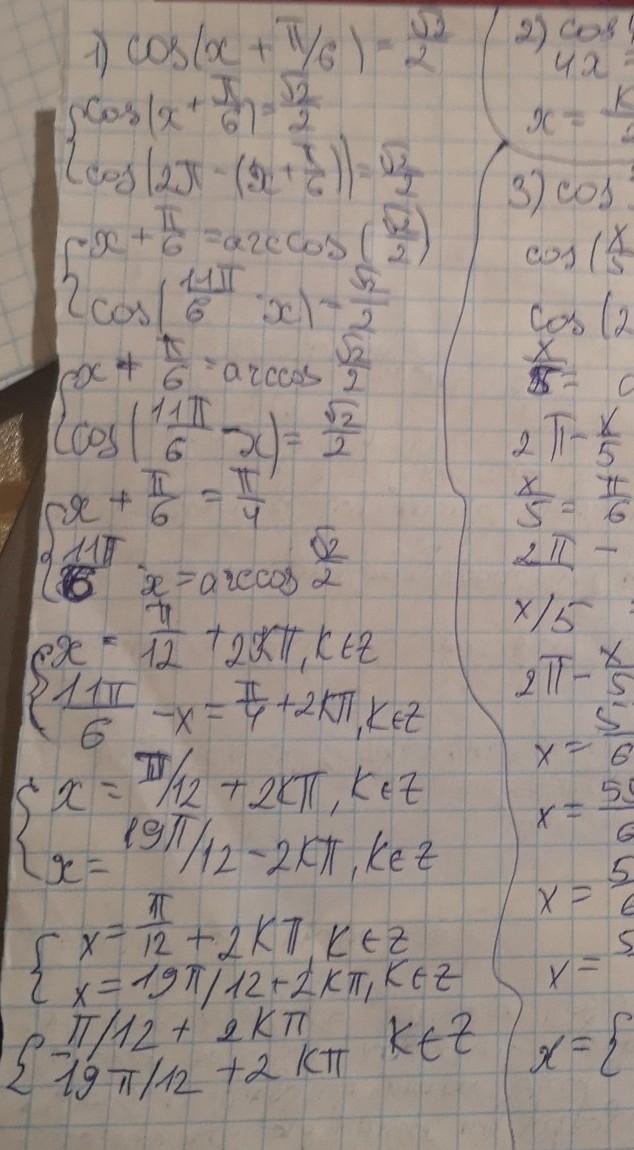 1) cos(x + π/6) = √2/2
{cos(x + π/6) = √2/2
{cos(2π - (x + π/6)) = √2/2
{x + π/6 = arccos(√2/2)
{cos(11π/6 x) = √2/2
{x + π/6 = arccos √2/2
{cos(11π/6 - x) = √2/2
{x + π/6 = π/4
{11π/6 x = arccos √2/2
{x = π/12 + 2Kπ, K∈Z
{11π/6 - x = π/4 + 2Kπ, K∈Z
{x = π/12 + 2Kπ, K∈Z
{x = 19π/12 - 2Kπ, K∈Z
{x = π/12 + 2Kπ, K∈Z
{x = 19π/12 + 2Kπ, K∈Z
{π/12 + 2Kπ K∈Z
{19π/12 + 2Kπ
2) cos
4x =
x =
3) cos
cos(x/5
cos(2
x/5 =
2π - x/5
x/5 = π/6
2π -
x/5
2π - x/5
x =
x =
x =
x =
x = {